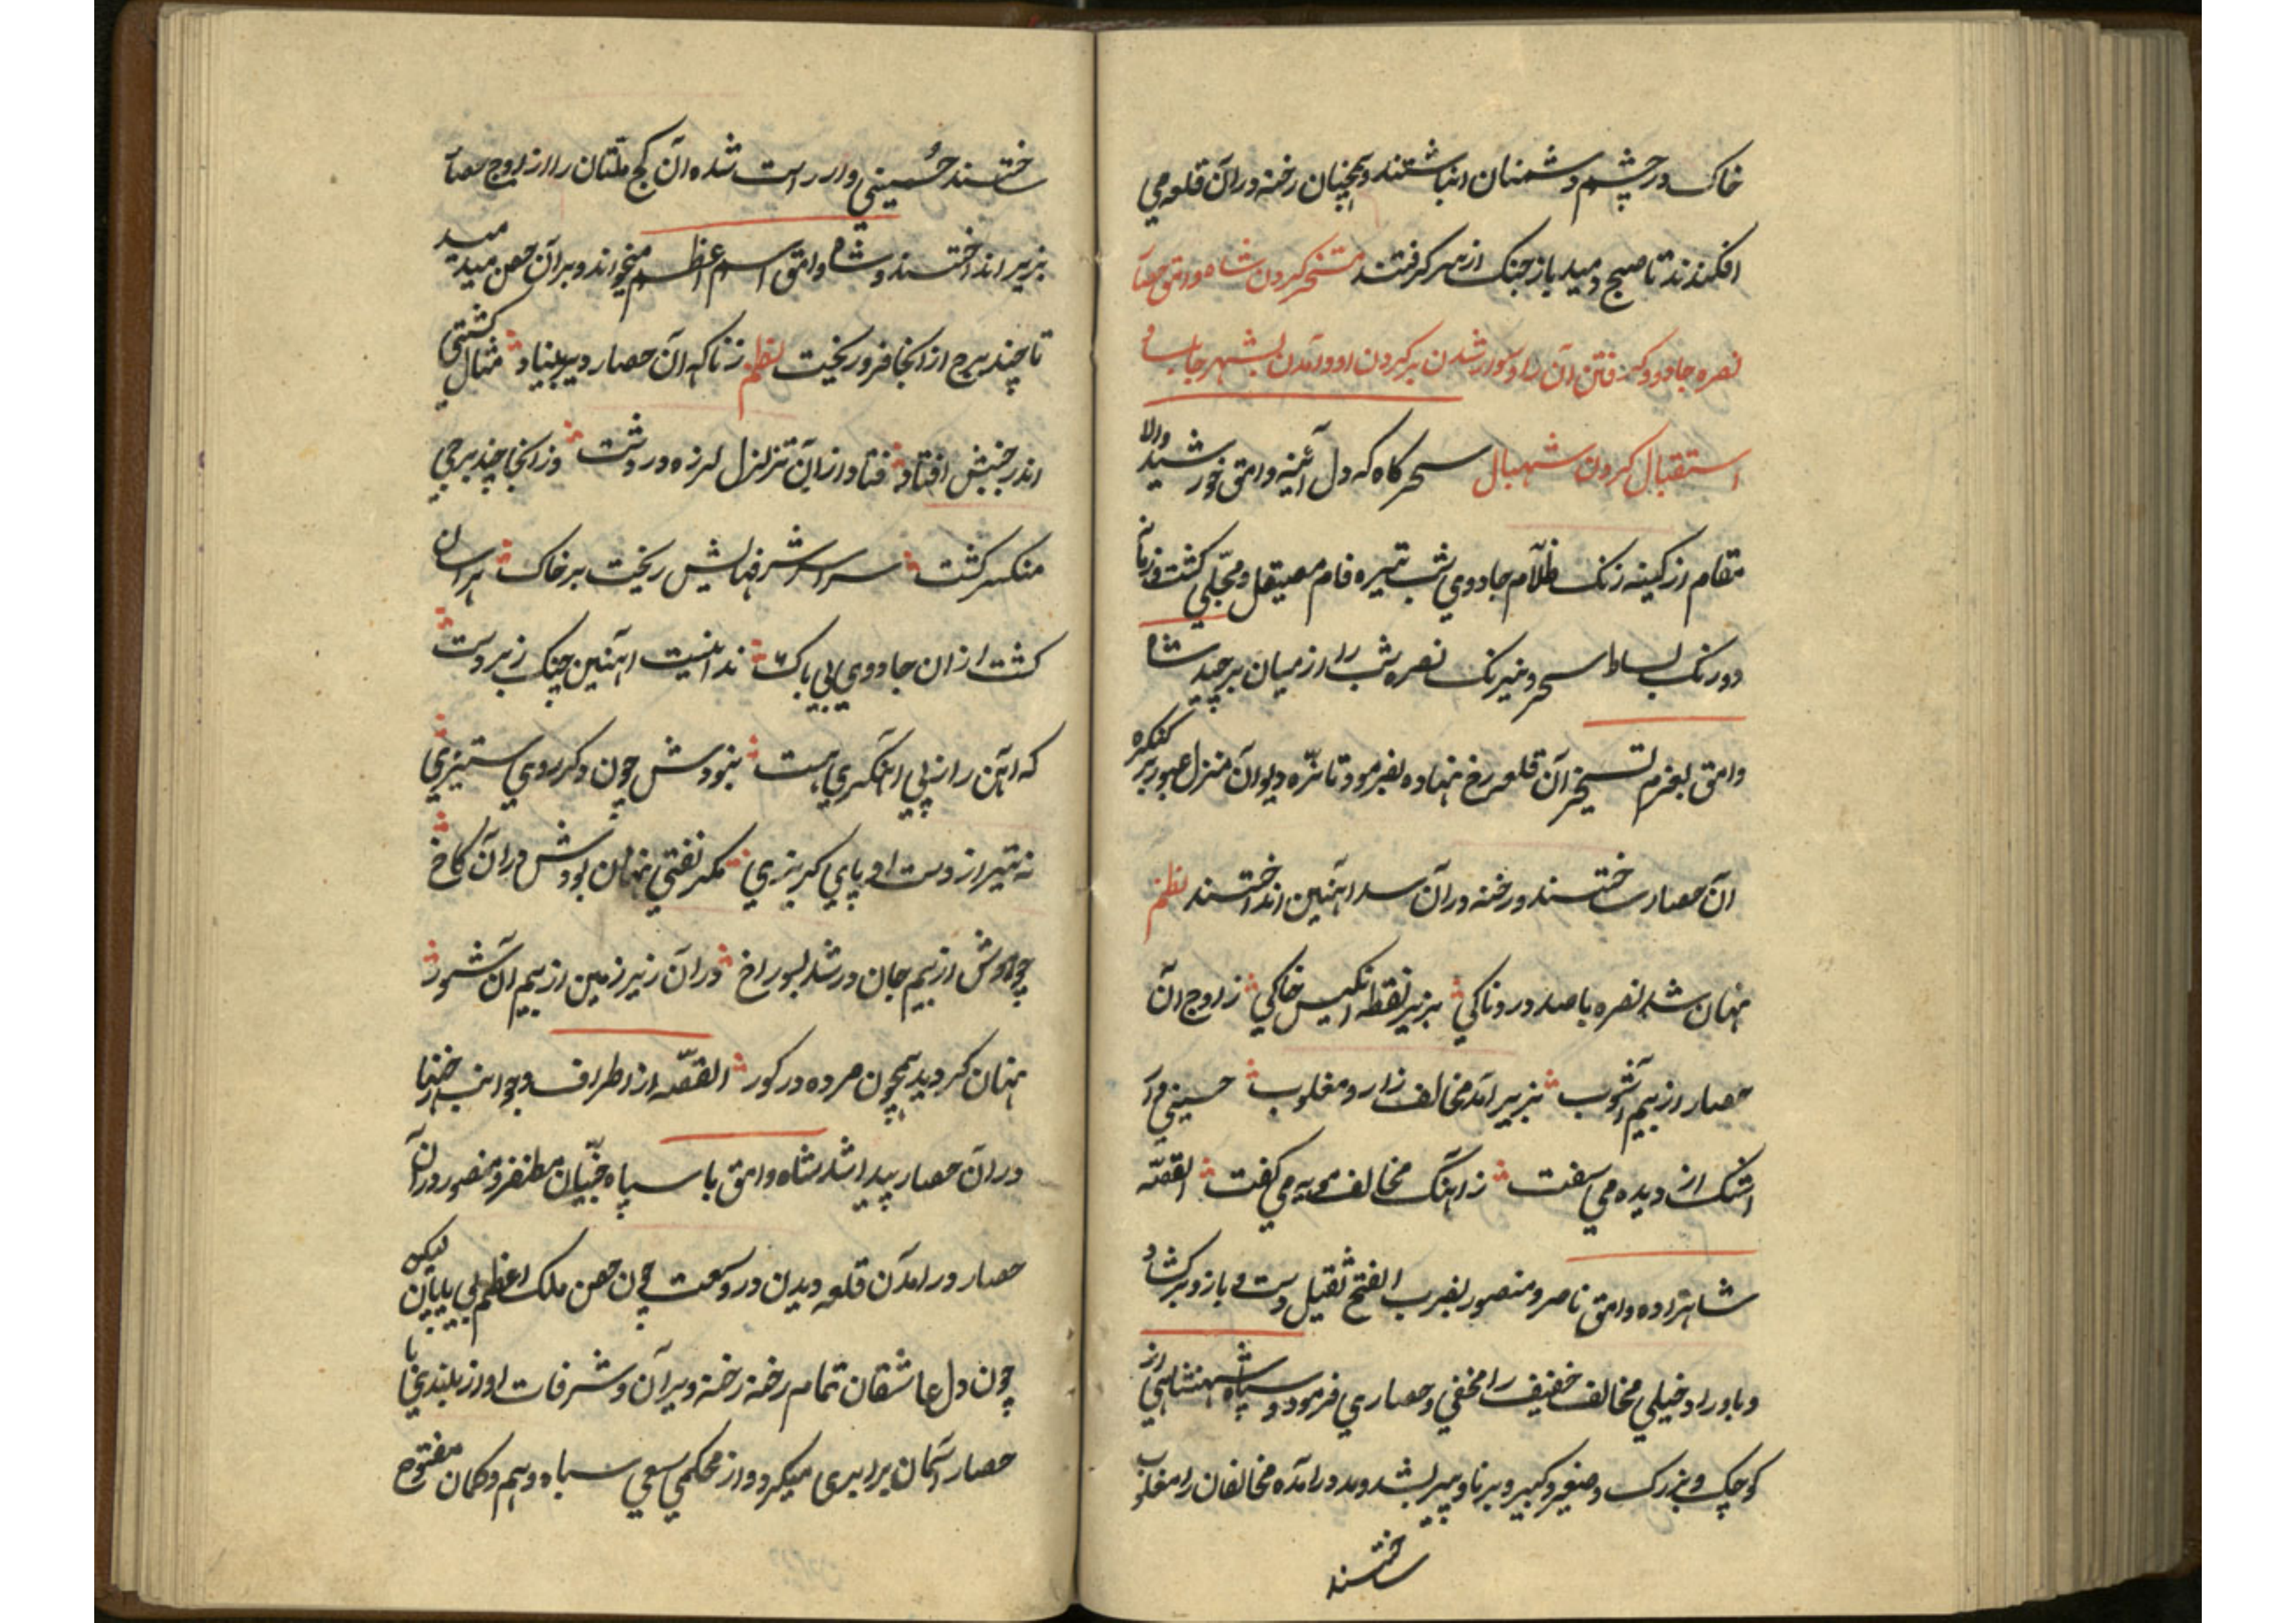 خاک در چشم دشمنان انباشتند و همچنان رخنه در آن قلعه می
افکندند تا صبح دمید باز جنک از سر کرفتند مسخر کردن شاه وامق حصار
نصره جادو و کرفتن آن را و سوار شدن بر کردن او و آمدن بشهر جابلسا و
استقبال کردن شهبال سحرکاه که دل آئینه وامق خورشید والا
مقام از کینه زنک ظلام جادوی شب تیره فام مصیقل و مجلی کشت و زمانه
دورنک بساط سحر و نیرنک نصره شب را از میان برچید شاه
وامق بعزم تسخیر آن قلعه رخ نهاده بفرمود تا نره دیوان منزل عبور بر کنکره
آن حصار ساختند و رخنه در آن سد آهنین انداختند نظم
نهان شد نصره با صد دردناکی بزیر نقطه انکیس خاکی ز اوج آن
حصار از بیم آشوب بزیر آمد مخالف زار و مغلوب حسینی وار
اشک از دیده می سفت ز آهنک مخالف مویه می کفت القصه
شاهزاده وامق ناصر و منصور بضرب الفتح ثقیل دست و بازو برکشاد
و باوراد خیلی مخالف خفیف را مخفی و حصاری فرمود و سپاه شهنشاهی از
کوچک و بزرک و صغیر و کبیر و برنا و پیر بشد و مد درآمده مخالفان را مغلوب
ساختند
ساختند حسینی وار راست شده آن کج ملتان را از اوج حصار
بزیر انداختند و شاه وامق اسم اعظم میخواند و بر آن حصن میدمید
تا چند برج از آنجا فرو ریخت نظم زناکه آن حصار دیر بنیاد مثال کشتی
اندر جنبش افتاد فتاد از آن تزلزل لرزه در دشت وز آنجا چند برجی
منکسر کشت سراسر شرفهایش ریخت بر خاک هراسان
کشت از آن جادوی بی باک ندانست آهنین چنک زبردست
که آهن را ز پی آهنکری هست نبودش چون دکر روی ستیزی
نه تیر از دست او پای کریزی مکر نقبی نهان بودش در آن کاخ
چو موش از بیم جان در شد بسوراخ در آن زیر زمین از بیم آن شور
نهان کردید همچون مرده در کور القصه از اطراف و جوانب رخنها
در آن حصار پیدا شد شاه وامق با سپاه جنیان مظفر و منصور در آن
حصار درآمدن قلعه دیدن در وسعت چون حصن ملک اعظم بی پایان لیکن
چون دل عاشقان تمام رخنه رخنه ویران و شرفات او از بلندی با
حصار آسمان برابری میکرد و از محکمی بسعی سپاه وهم و کمان مفتوح